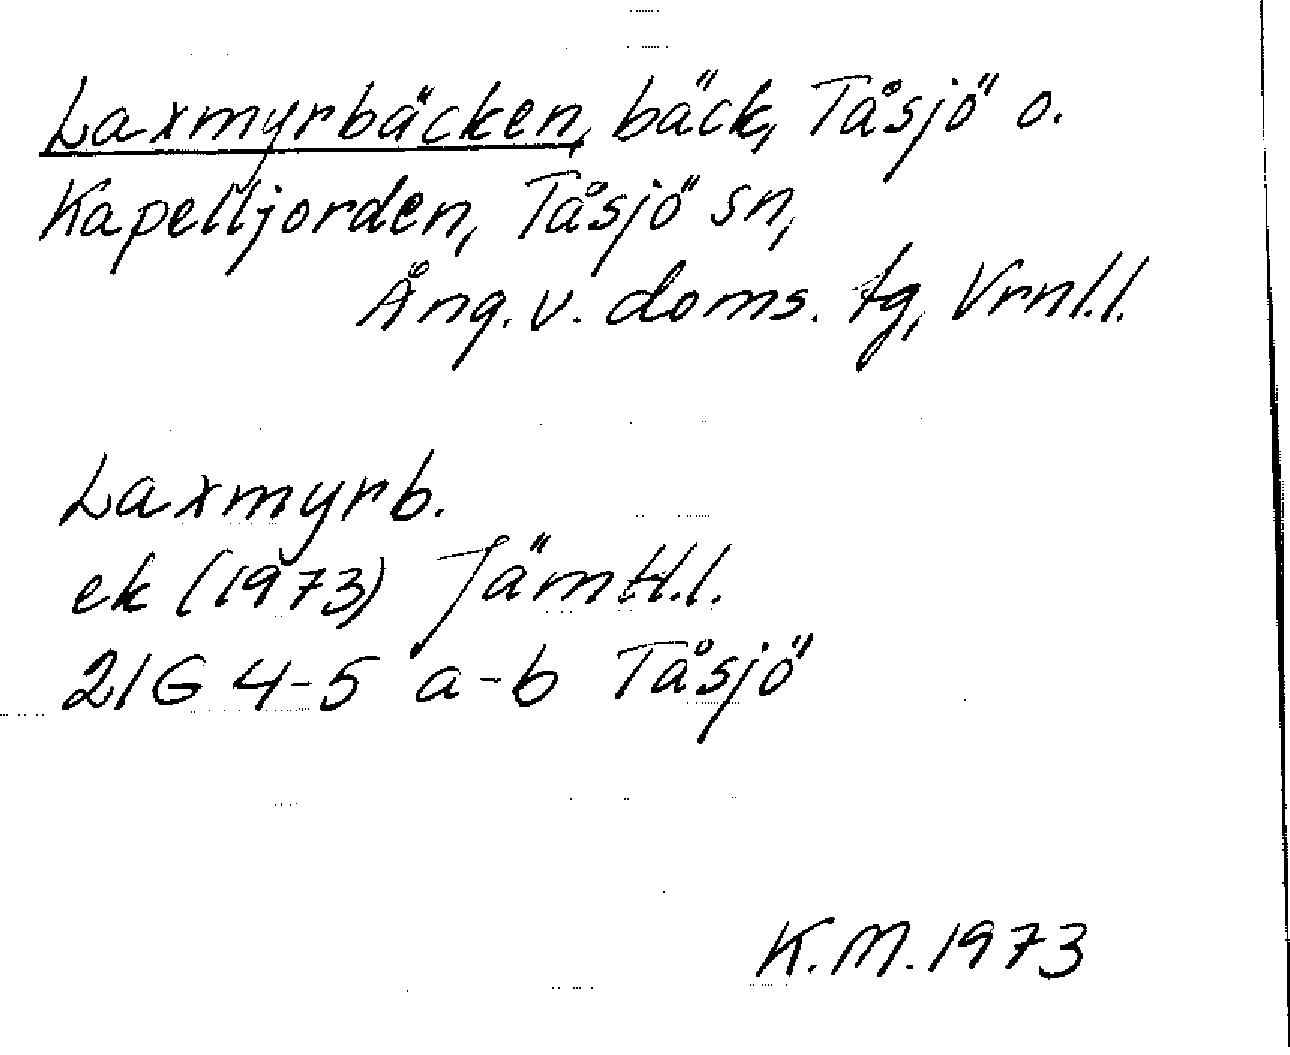 Laxmyrbäcken, bäck, Tåsjö o.
Kapelljorden, Tåsjö sn,
Ång. v. doms. tg, Vrnl.l.
Laxmyrb.
ek (1973) Jämtl.l.
21G 4-5 a-b Tåsjö
K.M. 1973